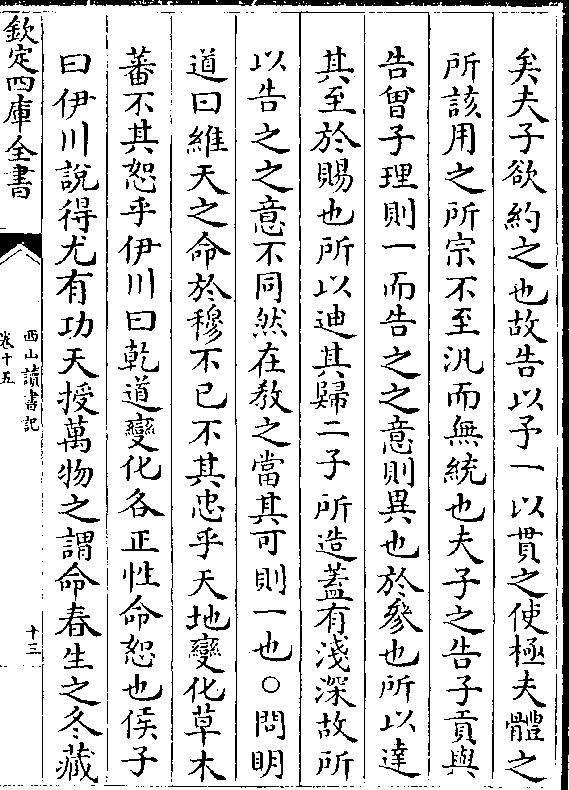 矣夫子欲約之也故告以予一以貫之使極夫體之
所該用之所宗不至汎而無統也夫子之告子貢與
告曾子理則一而告之之意則異也於參也所以達
其至於賜也所以迪其歸二子所造蓋有淺深故所
以告之之意不同然在教之當其可則一也○問明
道曰維天之命於穆不已不其忠乎天地變化草木
蕃不其恕乎伊川曰乾道變化各正性命恕也侯子
曰伊川說得尤有功天授萬物之謂命春生之冬藏
欽定四庫全書
西山讀書記
卷十五
十三